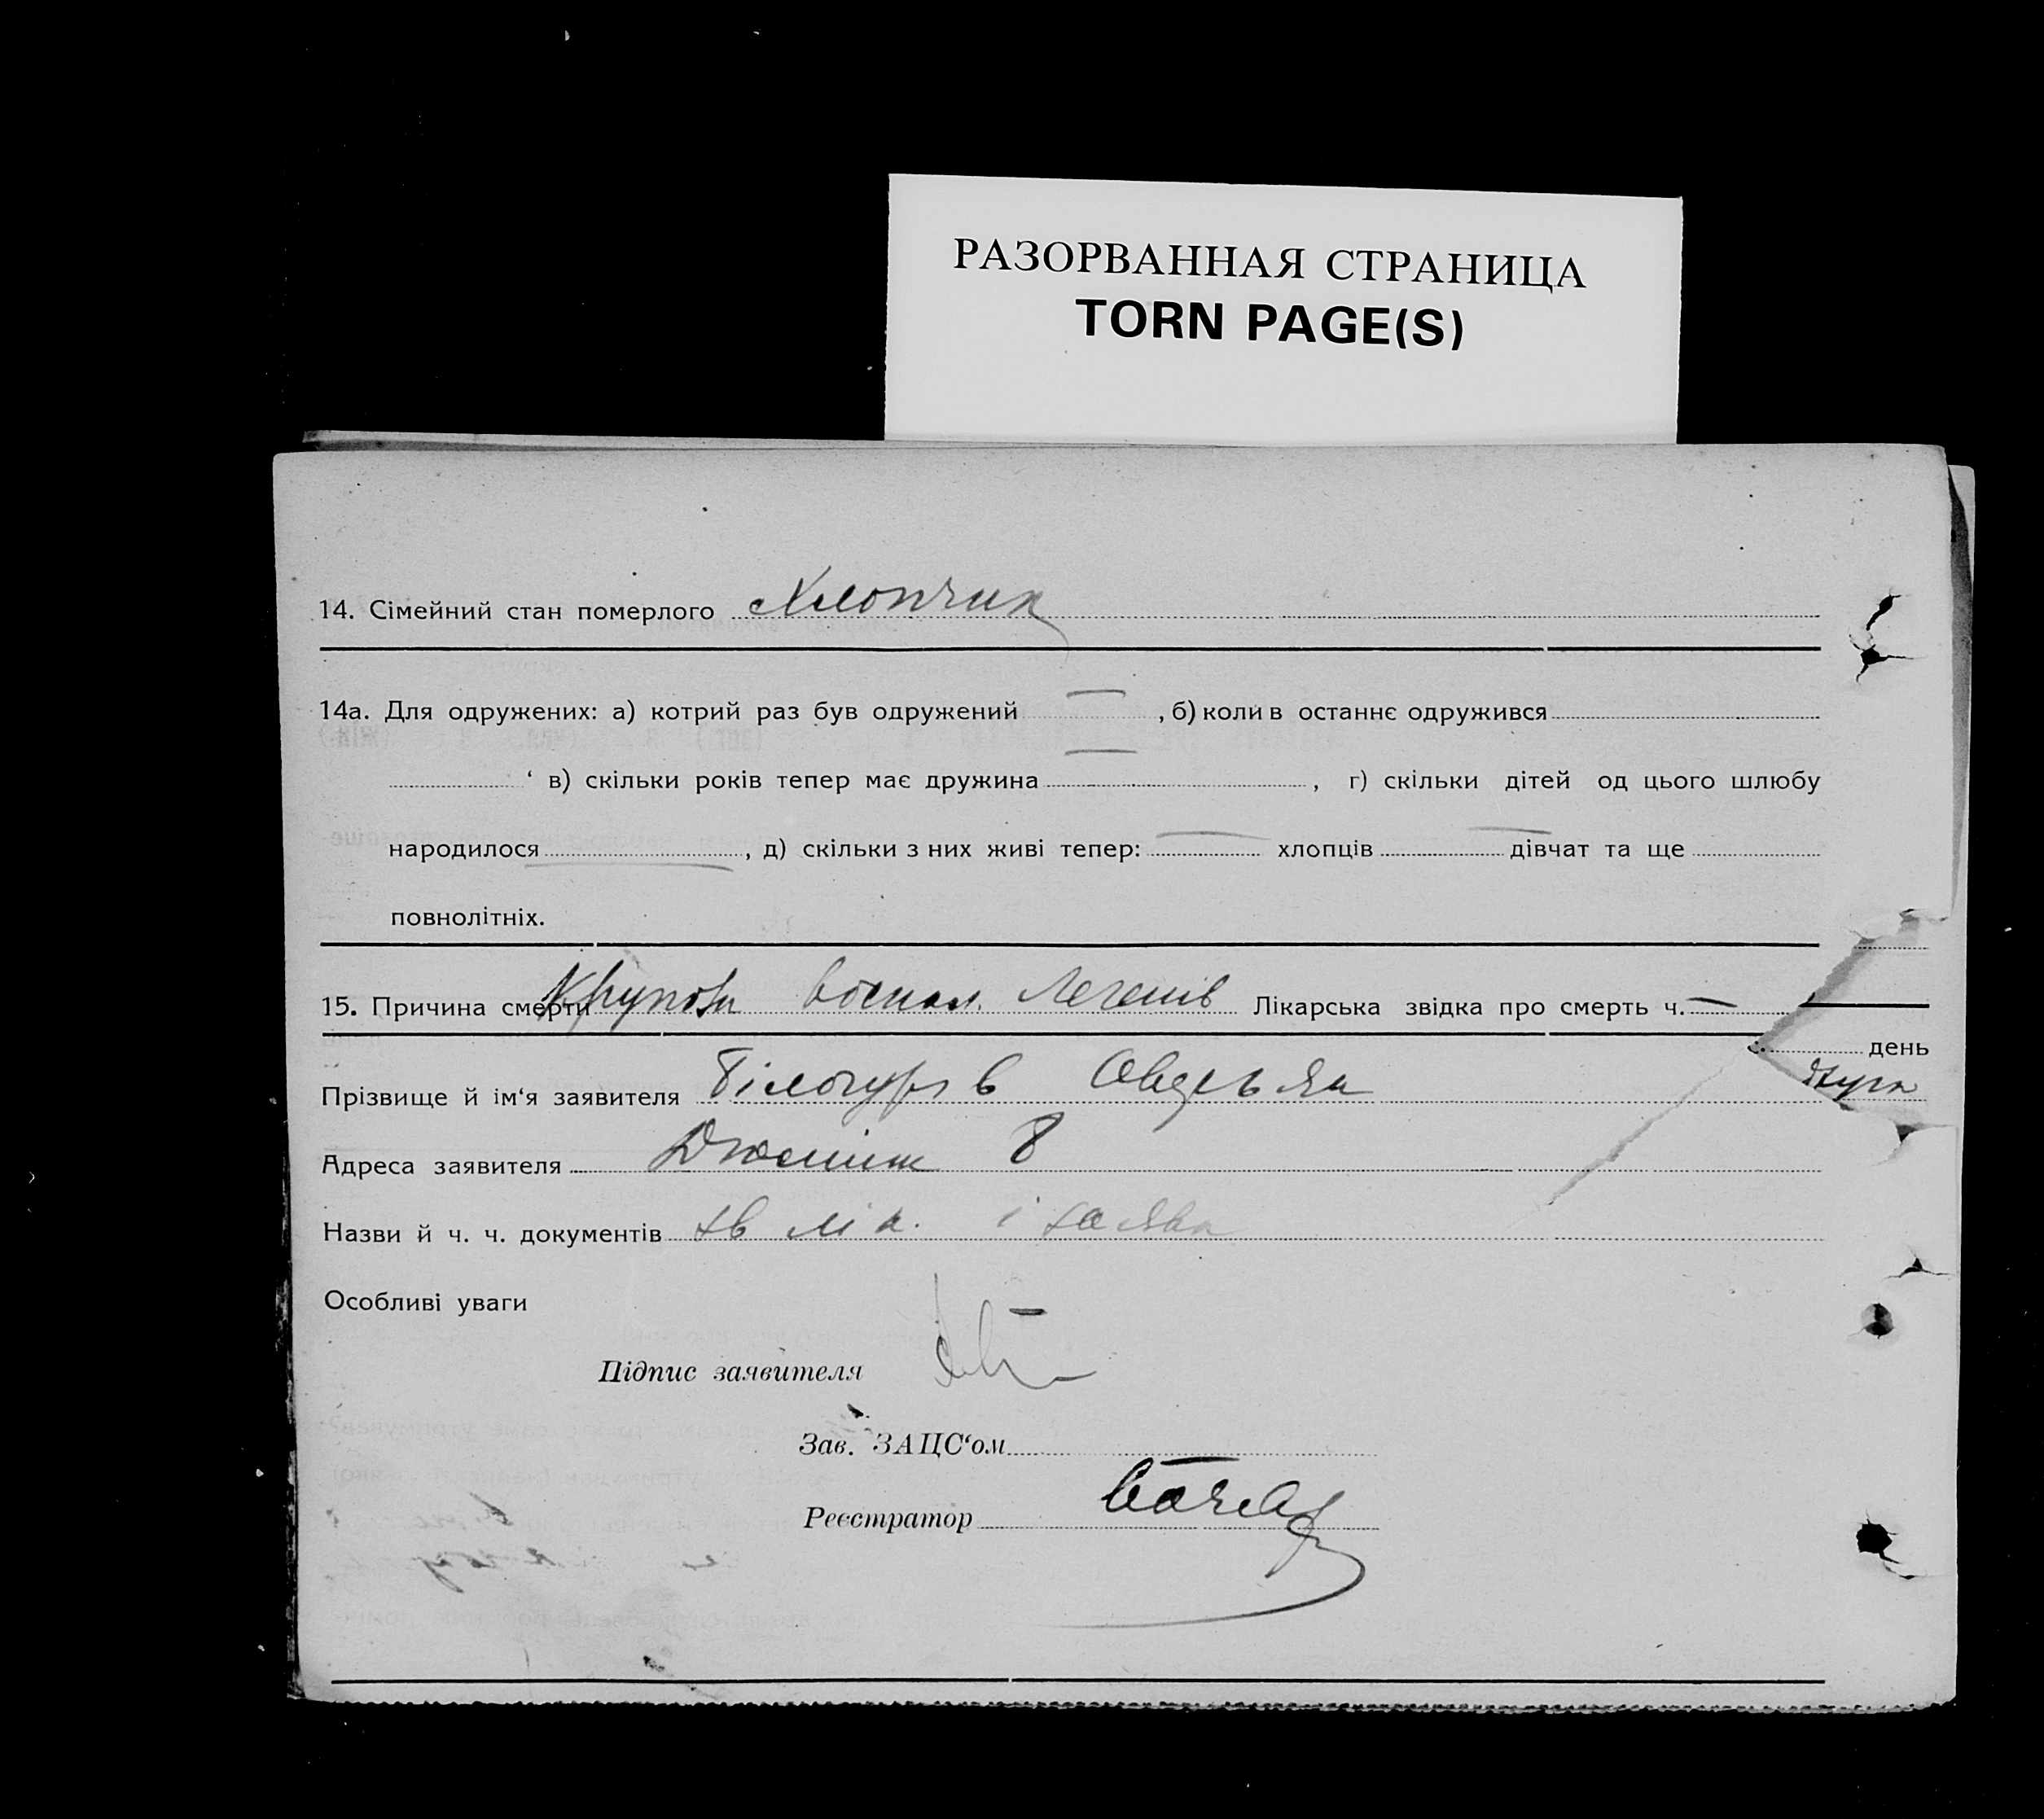 РАЗОРВАННАЯ СТРАНИЦА
TORN PAGE(S)
14. Сімейний стан померлого Хлопчик
14а. Для одружених: а) котрий раз був одружений — , б) коли в останнє одружився
‘ в) скільки років тепер має дружина — , г) скільки дітей од цього шлюбу
народилося — , д) скільки з них живі тепер: — хлопців — дівчат та ще
повнолітніх.
15. Причина смерти Крупозн воспал. Легенів Лікарська звідка про смерть ч. —
день
Прізвище й ім‘я заявителя
Адреса заявителя 8
Назви й ч. ч. документів і заява
Особливі уваги
Підпис заявителя
Зав. ЗАЦС‘ом
Реєстратор